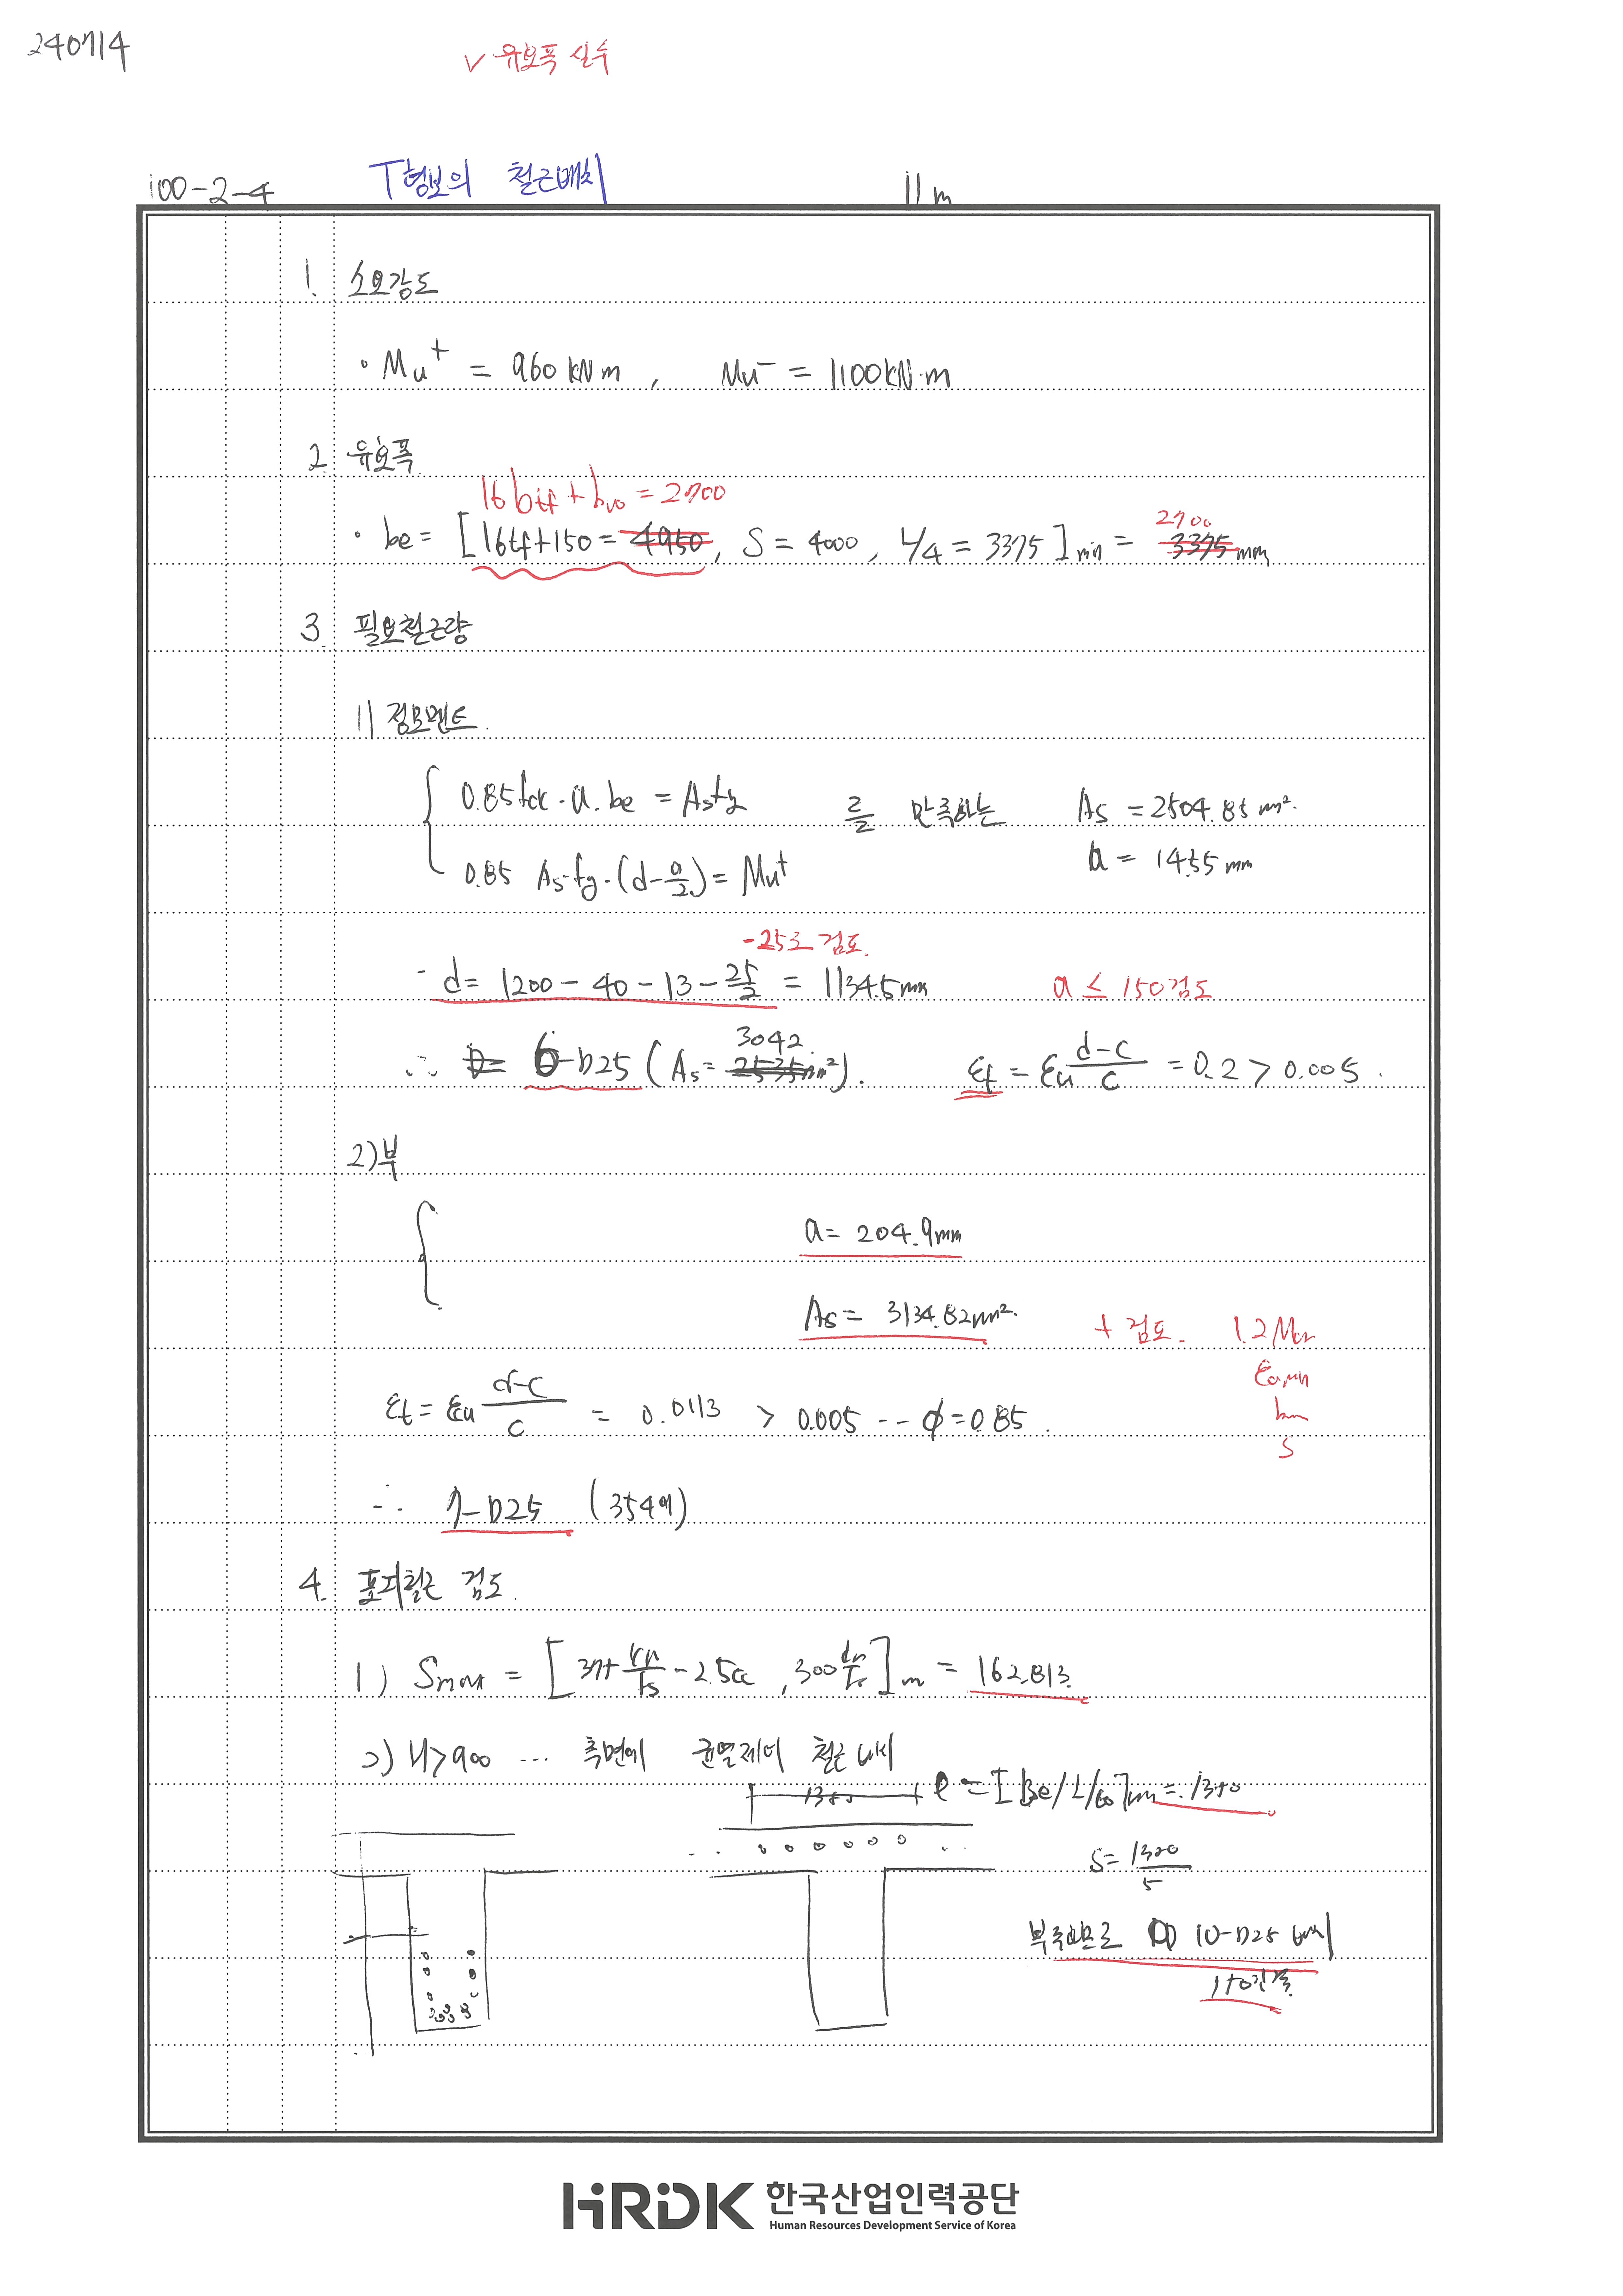 240714
√ 유효폭 실수
100-2-4 T형보의 철근배치 11m
1. 소요강도
· Mu⁺ = 960 kN m , Mu⁻ = 1100 kN·m
2. 유효폭
16 btf + bw = 2700
· be = [16tf+150 = 4950, S = 4000, L/4 = 3375] min = 3375 mm
2700
3. 필요철근량
1) 정모멘트
0.85fck · a · be = Asfy 를 만족하는 As = 2504.85 mm².
0.85 As·fy·(d-a/2) = Mu⁺ a = 14.55 mm
-25로 검토
- d = 1200 - 40 - 13 - 25/2 = 1134.5 mm a ≤ 150 검토
3042
∴ D= 6-D25 (As = 2535mm²). εt = εu (d-c)/c = 0.2 > 0.005 .
2) 부
a = 204.9mm
As = 3134.82 mm².
+ 검토. 1.2Mcr
εa,min
s
εt = εu (d-c)/c = 0.0113 > 0.005 -- φ = 0.85 .
∴ 7-D25 (3549)
4. 표피철근 검토.
1) Smax = [ 375 -2.5Cc , 300 ]m = 162.813.
2) H>900 ... 측면에 균열제어 철근 배치
1350 l = [Be/L/10]min = 1350
S = 1350/5
부주인장으로 10-D25 배치
150간격.
HRDK 한국산업인력공단
Human Resources Development Service of Korea